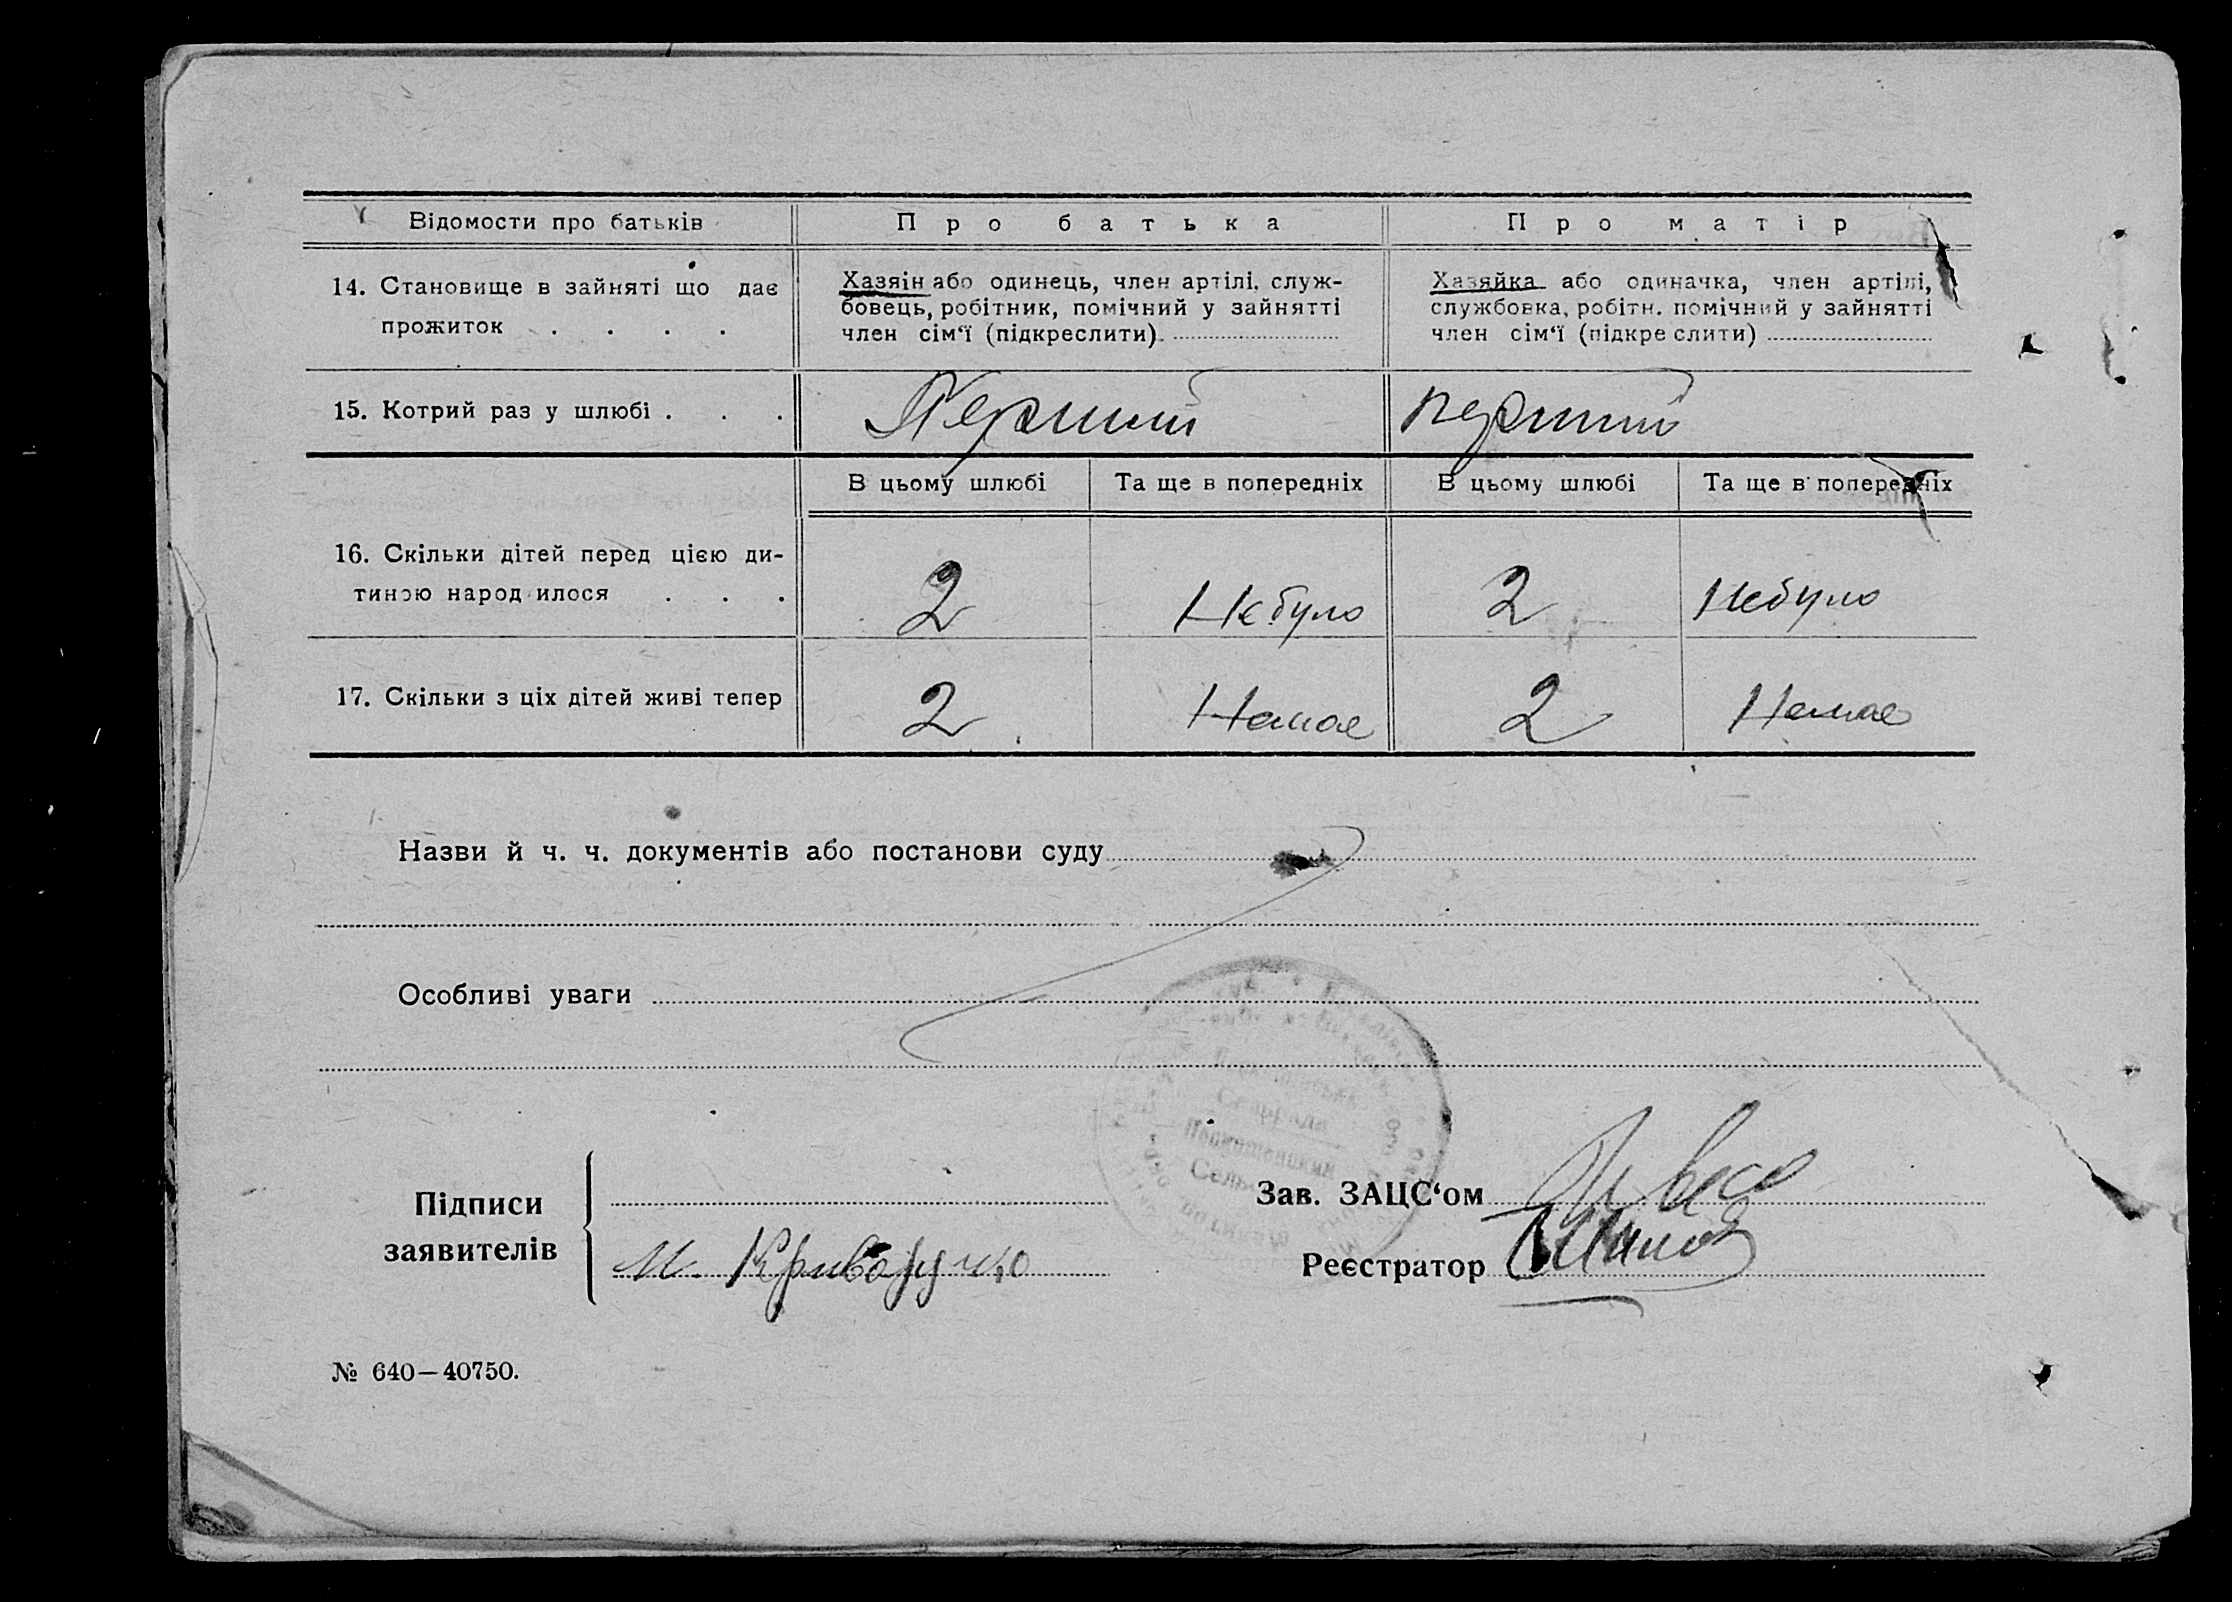 Відомости про батьків
Про батька
Про матір
14. Становище в зайняті що дає
прожиток . . . .
Хазяїн або одинець, член артілі, служ-
бовець, робітник, помічний у зайнятті
член сім‘ї (підкреслити)
Хазяйка або одиначка, член артілі,
службовка, робітн. помічний у зайнятті
член сім‘ї (підкре слити)
15. Котрий раз у шлюбі . . .
Перший
перший
В цьому шлюбі
Та ще в попередніх
В цьому шлюбі
Та ще в попередніх
16. Скільки дітей перед цією ди-
тиною народилося . . .
2
Небуло
2
Небуло
17. Скільки з ціх дітей живі тепер
2
Немає
2
Немає
Назви й ч. ч. документів або постанови суду
Особливі уваги
Підписи
заявителів
М. Криворучко
Зав. ЗАЦС‘ом
Реєстратор
№ 640—40750.